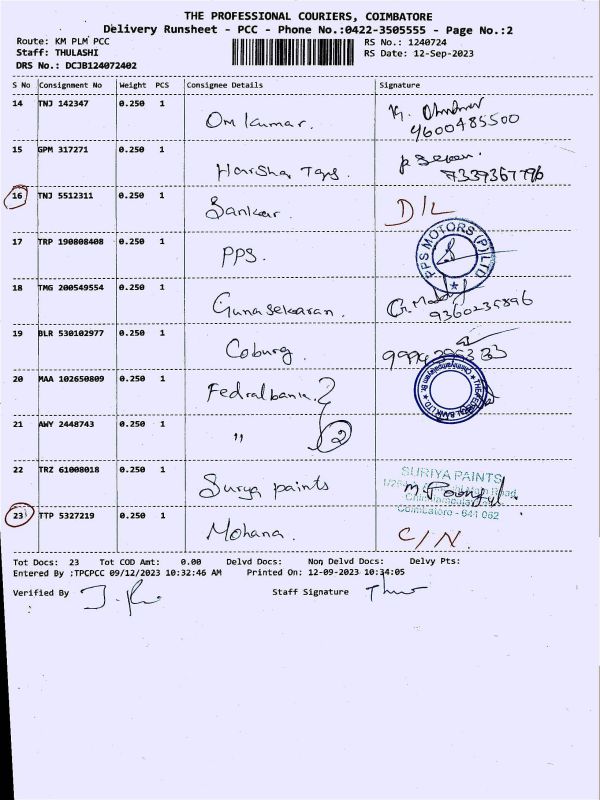 THE PROFESSIONAL COURIERS, COIMBATORE
Delivery Runsheet - PCC - Phone No.:0422-3505555 - Page No.:2
Route: KM PLM PCC RS No.: 1240724
Staff: THULASHI RS Date: 12-Sep-2023
DRS No.: DCJB124072402
S No Consignment No Weight PCS Consignee Details Signature
14 TNJ 142347 0.250 1 Om kumar.
4600485500
15 GPM 317271 0.250 1 Harsha Toys.
9339367796
16 TNJ 5512311 0.250 1 Sankar. D/L
17 TRP 190808408 0.250 1 PPS. PPS MOTORS (P) LTD
18 TMG 200549554 0.250 1 Gunasekaran.
9360235896
19 BLR 530102977 0.250 1 Coburg
20 MAA 102650809 0.250 1 Fedralbank. THE FEDERAL BANK LTD.
21 AWY 2448743 0.250 1 " 2
22 TRZ 61008018 0.250 1 Surya paints SURIYA PAINTS
Coimbatore - 641 062
23 TTP 5327219 0.250 1 Mohana. C/N.
Tot Docs: 23 Tot COD Amt: 0.00 Delvd Docs: Non Delvd Docs: Delvy Pts:
Entered By :TPCPCC 09/12/2023 10:32:46 AM Printed On: 12-09-2023 10:34:05
Verified By Staff Signature